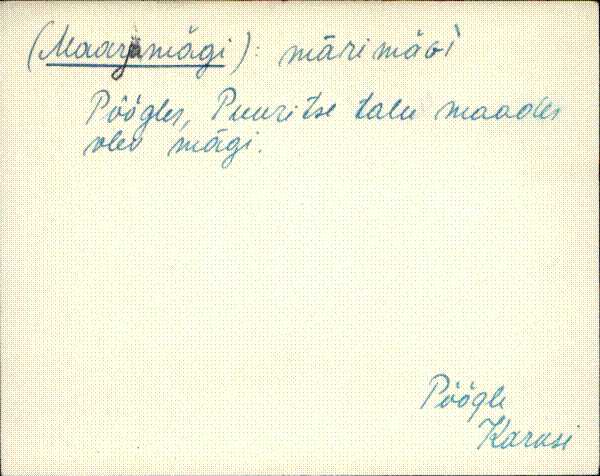 (Maarjamägi): märimägì
Pöögles, Puuritse talu maades
olev mägi.
Pöögle
Karusi